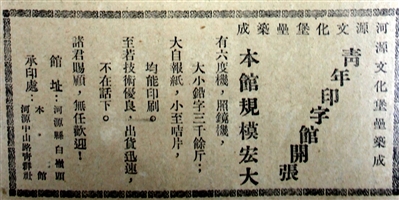 河源文化堡壘築成
河源文化堡壘築成
青年印字館開張
本館規模宏大
有六度機，照鏡機，
大小鉛字三千餘斤；
大自報紙，小至咭片，
均能印刷。
至若技術優良，出貨迅速，
不在話下。
諸君賜顧，無任歡迎！
館址：河源縣白欖頭
承印處：本館
河源中山路齊輝社